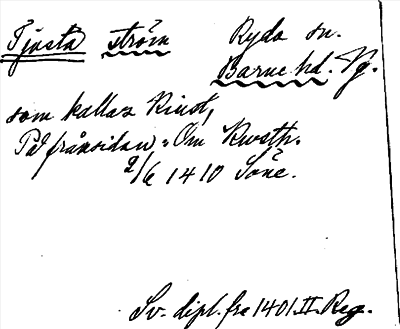 Tjusta ström Ryda sn.
Barne hd. Vg.
som kallaz Kiust,
På frånsidan: Om Kweth.
2/6 1410 Sone.
Sv. dipl. fr. 1401 II. Reg.